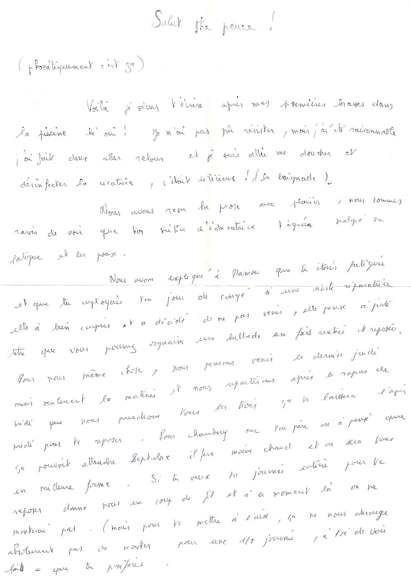 Salut Ma puce !
(phonétiquement c'est ça)
Voilà je viens t'écrire après mes premières brasses dans
la piscine ! je n'ai pas pu résister, mais j'ai été raisonnable
j'ai fait deux aller retour et je suis allée me doucher et
désinfecter la cicatrice, c'était délicieux ! (la baignade).
Nous avons reçu la prose avec plaisir, nous sommes
ravis de voir que ton métier d'éducatrice malgré ta
fatigue et les poux.
Nous avons expliqué à Maman que tu étais fatiguée
et que tu employais ton jour de congé à une sieste réparatrice
elle a bien compris et a décidé de ne pas venir, elle pense
que vous pouvez une ballade en fait
Pour nous même chose, nous pensons venir le dernier jeudi
mais seulement la matinée et nous repartirons après le repas de
midi que nous prendrons tous les trois, ça te laissera l'après
midi pour te reposer. Pour Chambery me ton père on a pensé que
ça pouvait attendre Septembre il fera moins chaud et on sera tous
en meilleure forme. Si tu veux ta journée entière pour te
reposer donne nous un coup de fil et à ce moment là on ne
montera pas. (mais pour te mettre à l'aise, ça ne nous dérange
absolument pas de monter pour une 1/2 journée, à toi de voir
ce que tu préfères.